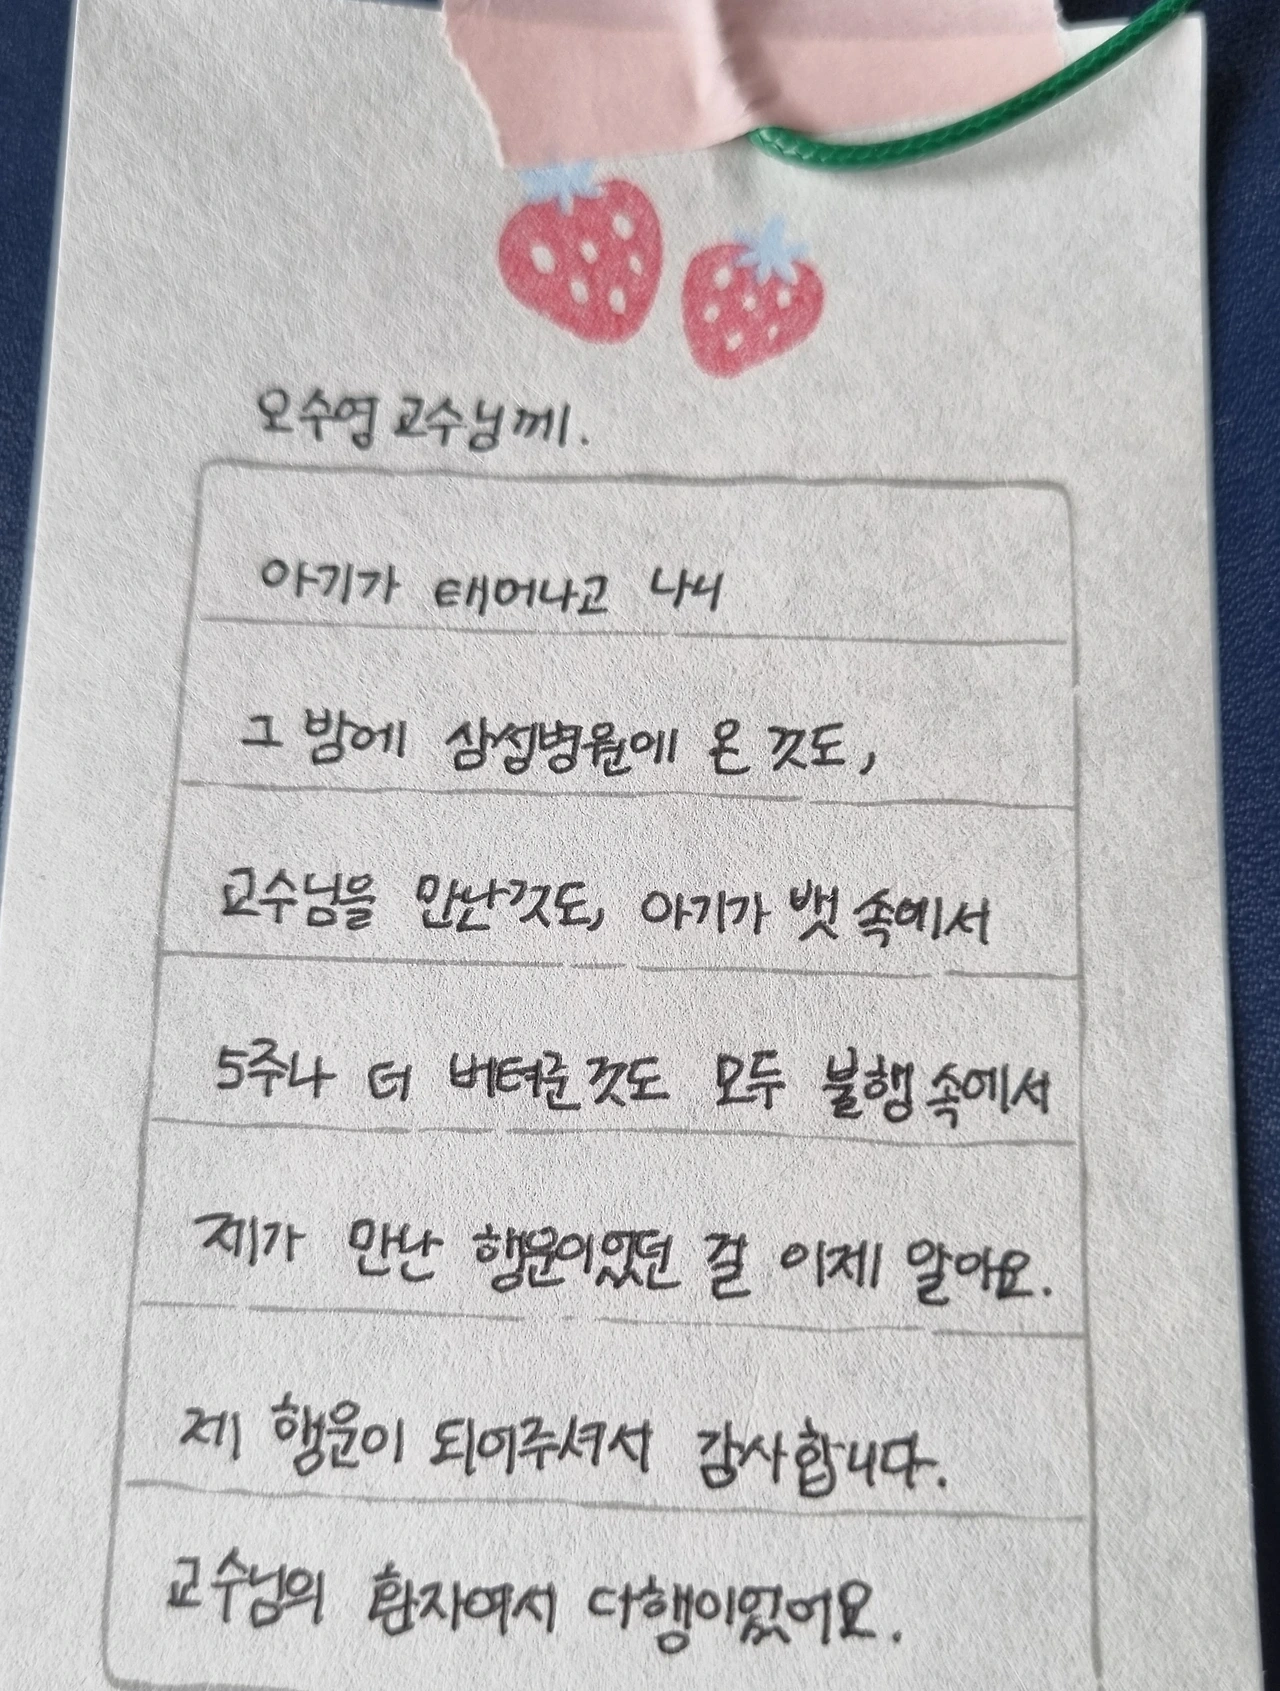 오수영 교수님께.
아기가 태어나고 나니
그 밤에 삼성병원에 온 것도,
교수님을 만난것도, 아기가 뱃 속에서
5주나 더 버텨준것도 모두 불행 속에서
제가 만난 행운이었던 걸 이제 알아요.
제 행운이 되어주셔서 감사합니다.
교수님의 환자여서 다행이었어요.